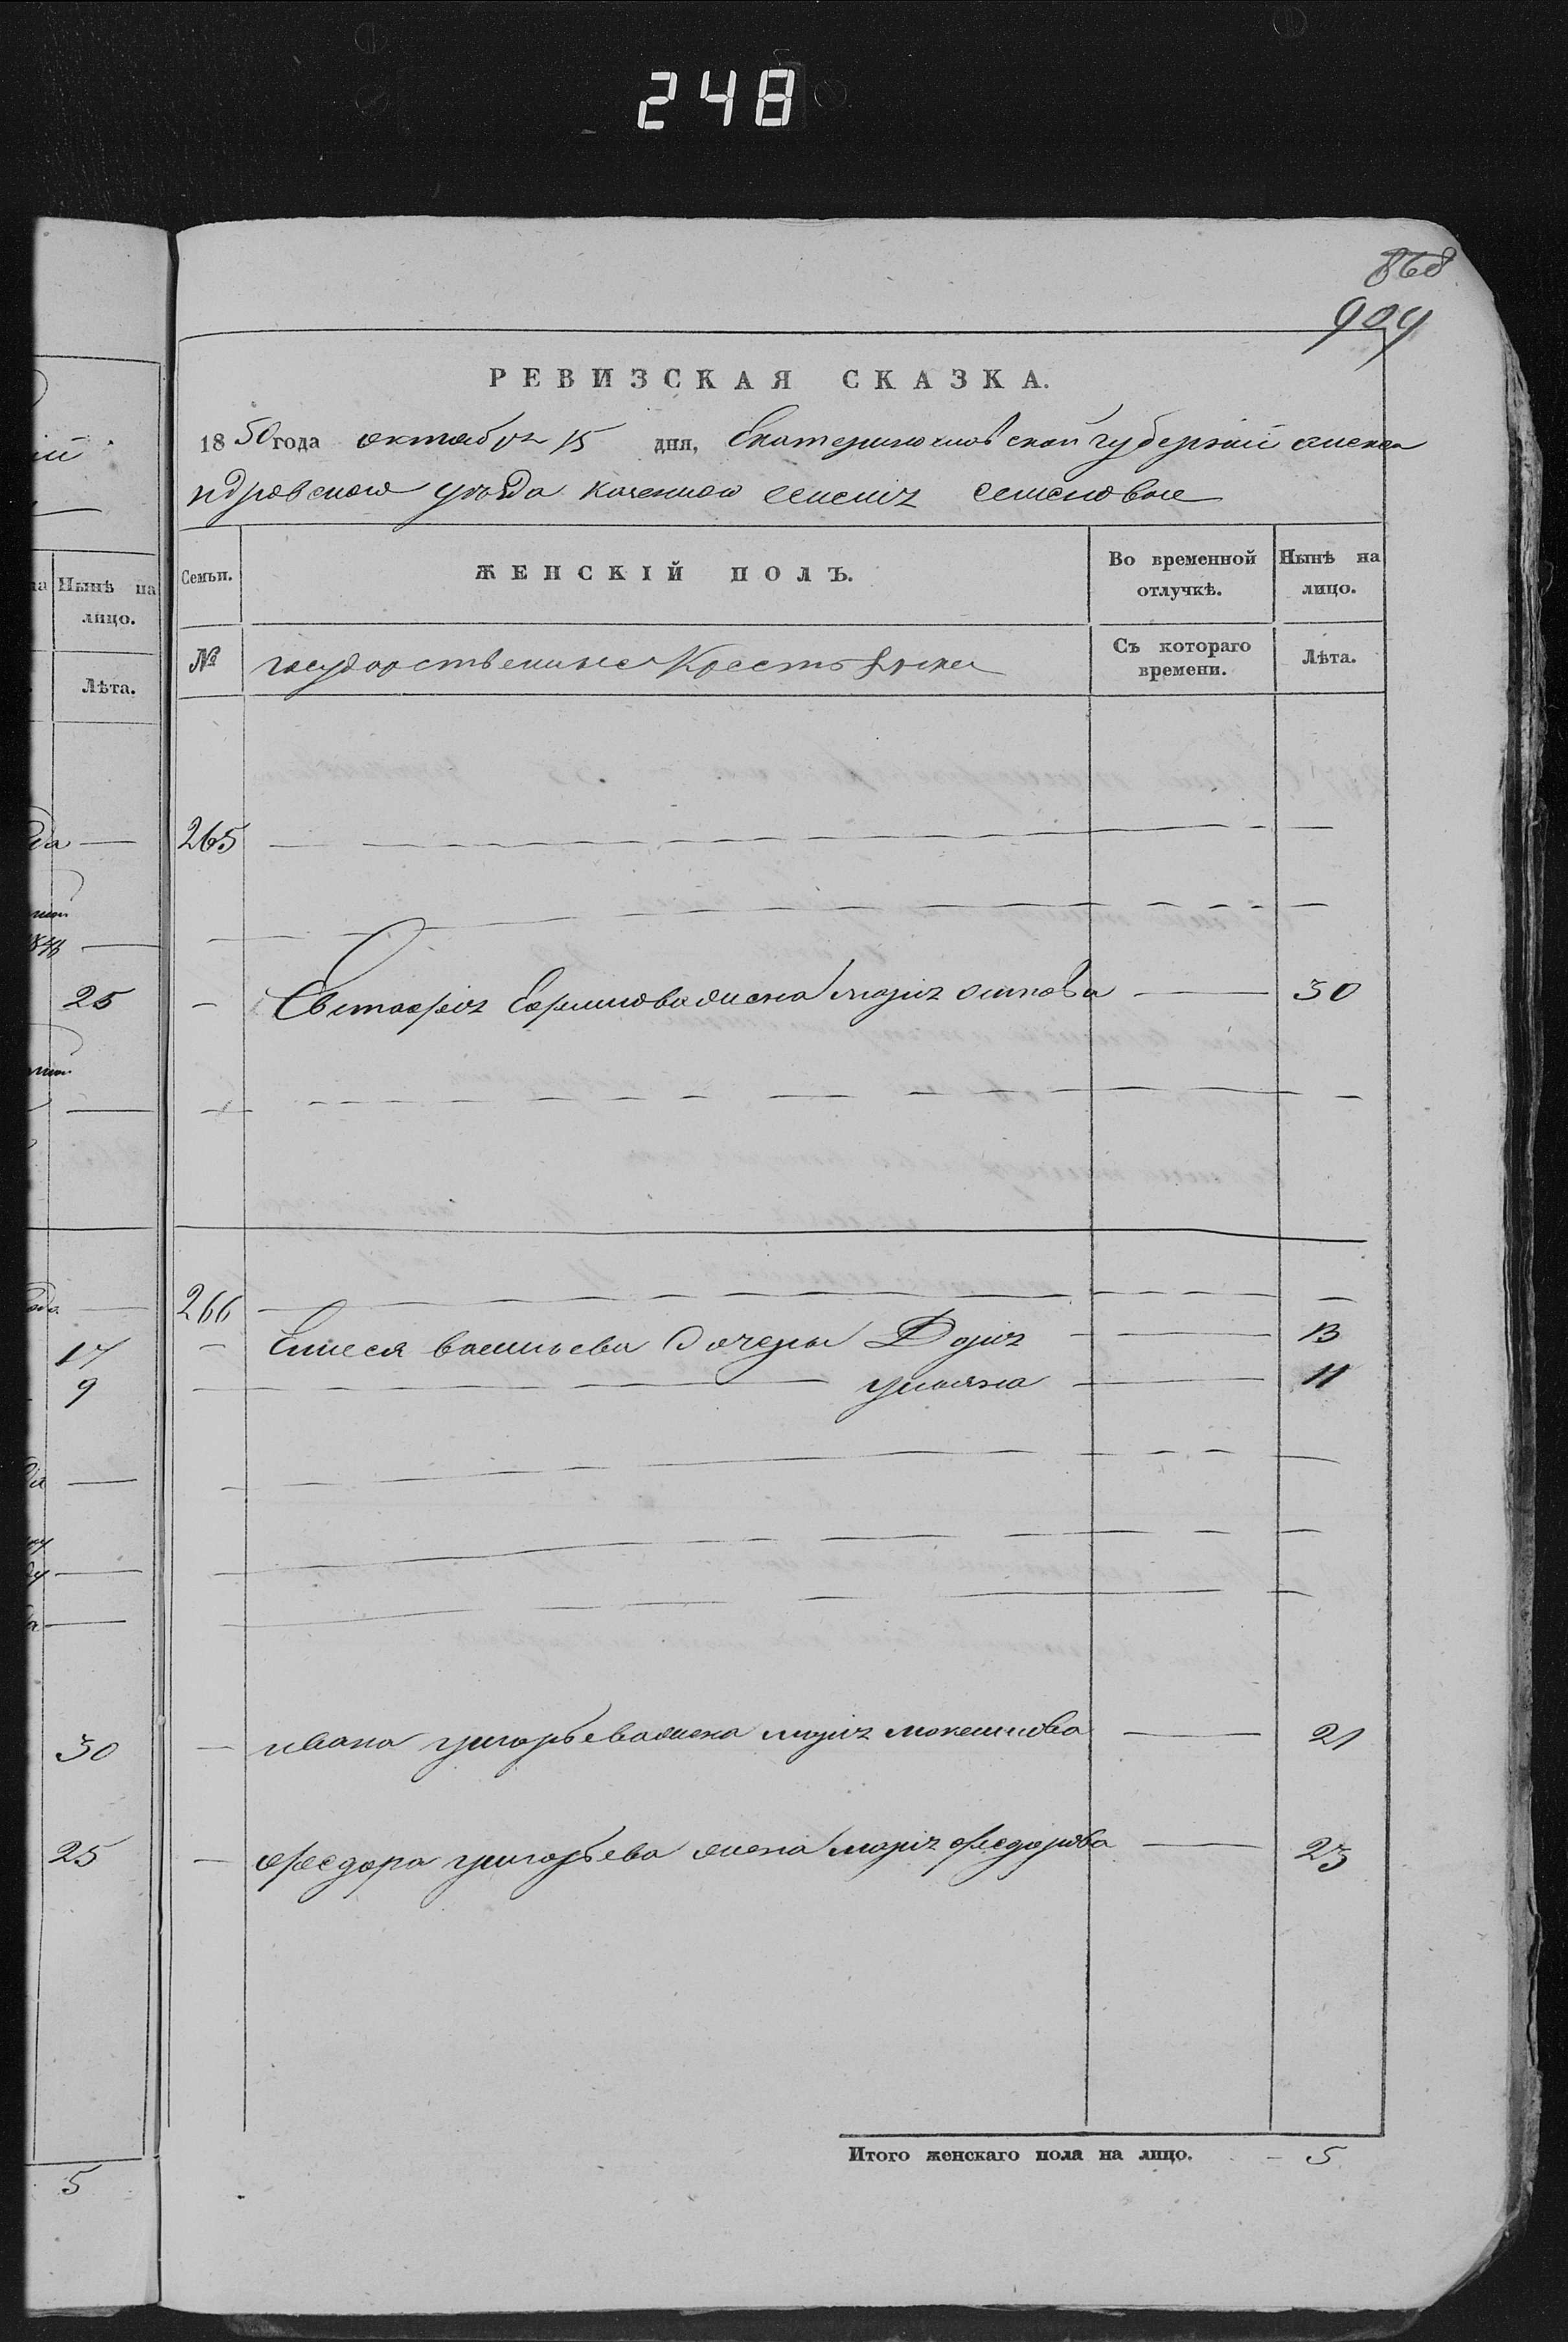 248
868
909
РЕВИЗСКАЯ СКАЗКА.
1850 года октября 15 дня, Екатеринославской губернии алекса
ндровского уезда казенного селения семеновки
Семьи. ЖЕНСКІЙ ПОЛЪ. Во временной отлучкѣ. Нынѣ на лицо.
№ государственные Крестьяне Съ котораго времени. Лѣта.
265
Евстафія Ефимова жена марія осипова 30
266
Елисея васильева дочери Дарія 13
ульяна 11
ивана григорьева жена марія 21
федора григорьева жена марія федорова 23
Итого женскаго пола на лицо. 5
Нынѣ на
лицо.
Лѣта.
25
17
9
30
25
5